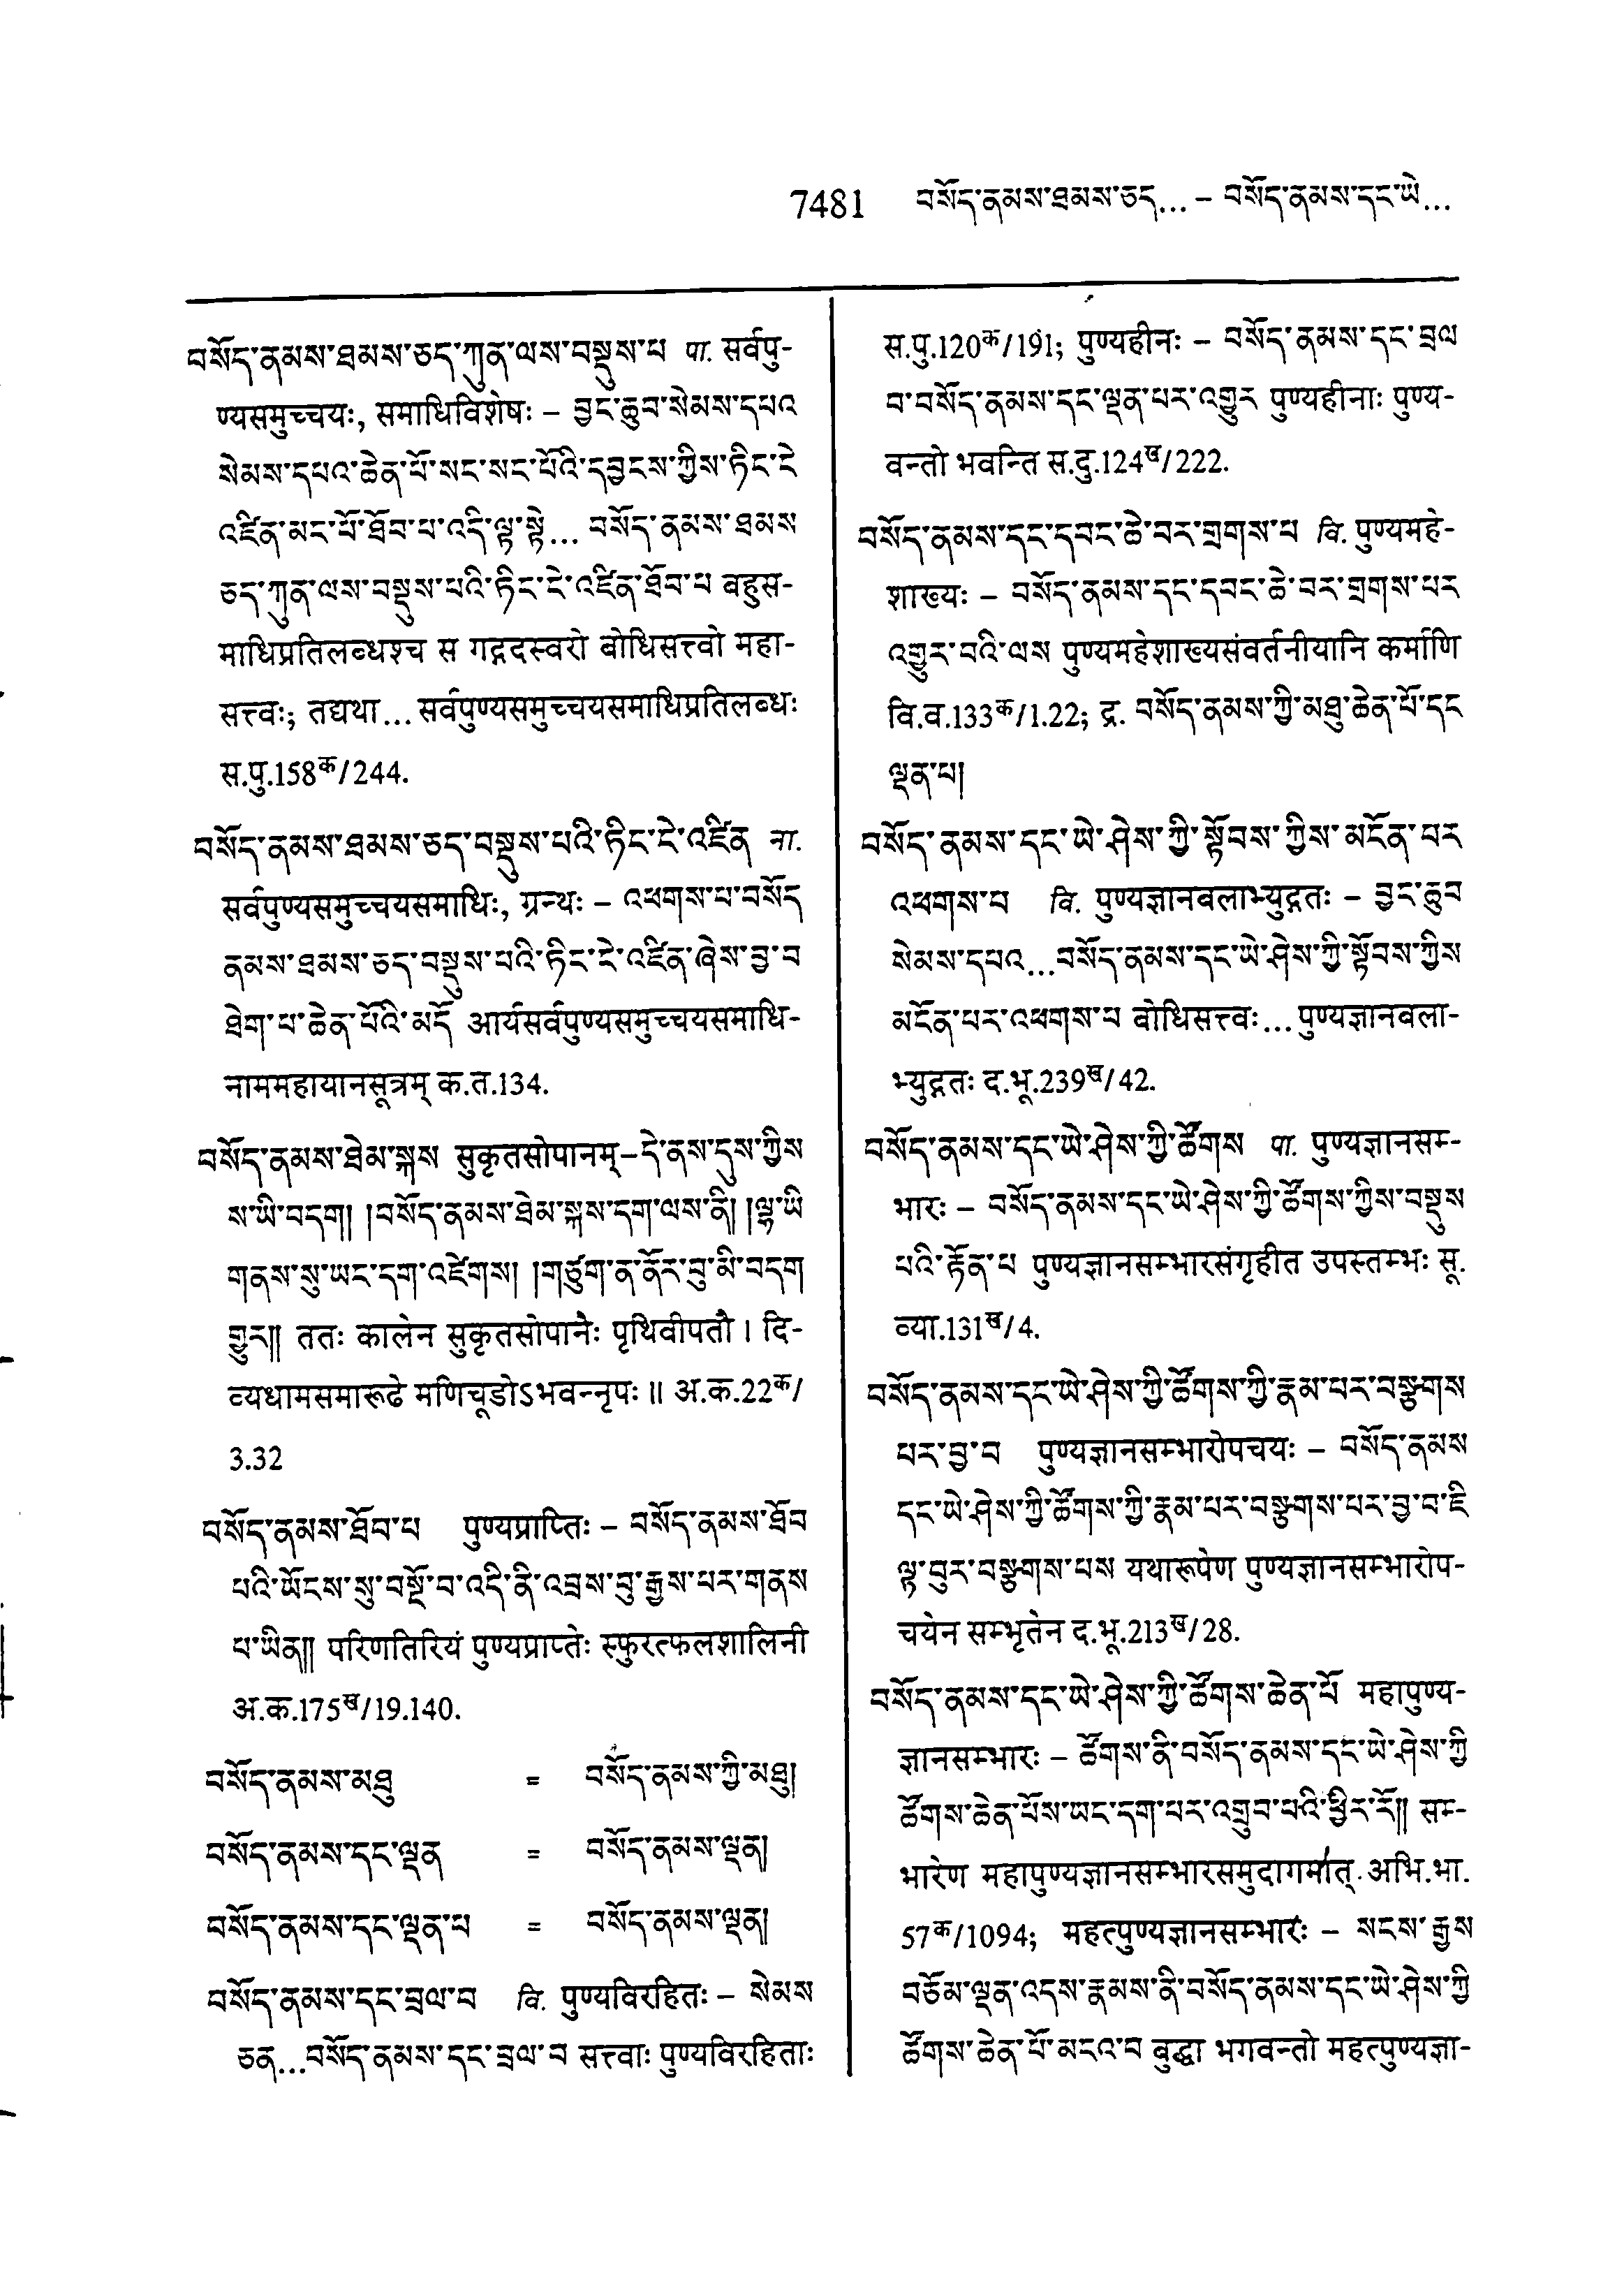 7481 བསོད་ནམས་ཐམས་ཅད... – བསོད་ནམས་དང་ཡེ...
བསོད་ནམས་ཐམས་ཅད་ཀུན་ལས་བསྡུས་པ पा. सर्वपु-
ण्यसमुच्चयः, समाधिविशेषः – བྱང་ཆུབ་སེམས་དཔའ
སེམས་དཔའ་ཆེན་པོ་སང་སང་པོའི་དབྱངས་ཀྱིས་ཏིང་ངེ
འཛིན་མང་པོ་ཐོབ་པ་འདི་ལྟ་སྟེ... བསོད་ནམས་ཐམས
ཅད་ཀུན་ལས་བསྡུས་པའི་ཏིང་ངེ་འཛིན་ཐོབ་པ बहुस-
माधिप्रतिलब्धश्च स गद्गदस्वरो बोधिसत्त्वो महा-
सत्त्वः; तद्यथा... सर्वपुण्यसमुच्चयसमाधिप्रतिलब्धः
स.पु.158क/244.
བསོད་ནམས་ཐམས་ཅད་བསྡུས་པའི་ཏིང་ངེ་འཛིན ना.
सर्वपुण्यसमुच्चयसमाधिः, ग्रन्थः – འཕགས་པ་བསོད
ནམས་ཐམས་ཅད་བསྡུས་པའི་ཏིང་ངེ་འཛིན་ཞེས་བྱ་བ
ཐེག་པ་ཆེན་པོའི་མདོ आर्यसर्वपुण्यसमुच्चयसमाधि-
नाममहायानसूत्रम् क.त.134.
བསོད་ནམས་ཐེམ་སྐས सुकृतसोपानम्–དེ་ནས་དུས་ཀྱིས
ས་ཡི་བདག། །བསོད་ནམས་ཐེམ་སྐས་དག་ལས་ནི། །ལྷ་ཡི
གནས་སུ་ཡང་དག་འཛེགས། །གཙུག་ན་ནོར་བུ་མི་བདག
གྱུར།། ततः कालेन सुकृतसोपानैः पृथिवीपतौ । दि-
व्यधामसमारूढे मणिचूडोऽभवन्नृपः ॥ अ.क.22क/
3.32
བསོད་ནམས་ཐོབ་པ पुण्यप्राप्तिः – བསོད་ནམས་ཐོབ
པའི་ཡོངས་སུ་བསྔོ་བ་འདི་ནི་འབྲས་བུ་རྒྱས་པར་གནས
པ་ཡིན།། परिणतिरियं पुण्यप्राप्तेः स्फुरत्फलशालिनी
अ.क.175ख/19.140.
བསོད་ནམས་མཐུ = བསོད་ནམས་ཀྱི་མཐུ།
བསོད་ནམས་དང་ལྡན = བསོད་ནམས་ལྡན།
བསོད་ནམས་དང་ལྡན་པ = བསོད་ནམས་ལྡན།
བསོད་ནམས་དང་བྲལ་བ वि. पुण्यविरहितः – སེམས
ཅན...བསོད་ནམས་དང་བྲལ་བ सत्त्वाः पुण्यविरहिताः
स.पु.120क/191; पुण्यहीनः – བསོད་ནམས་དང་བྲལ
བ་བསོད་ནམས་དང་ལྡན་པར་འགྱུར पुण्यहीनाः पुण्य-
वन्तो भवन्ति स.दु.124ख/222.
བསོད་ནམས་དང་དབང་ཆེ་བར་གྲགས་པ वि. पुण्यमहे-
शाख्यः – བསོད་ནམས་དང་དབང་ཆེ་བར་གྲགས་པར
འགྱུར་བའི་ལས पुण्यमहेशाख्यसंवर्तनीयानि कर्माणि
वि.व.133क/1.22; द्र. བསོད་ནམས་ཀྱི་མཐུ་ཆེན་པོ་དང
ལྡན་པ།
བསོད་ནམས་དང་ཡེ་ཤེས་ཀྱི་སྟོབས་ཀྱིས་མངོན་པར
འཕགས་པ वि. पुण्यज्ञानबलाभ्युद्गतः – བྱང་ཆུབ
སེམས་དཔའ...བསོད་ནམས་དང་ཡེ་ཤེས་ཀྱི་སྟོབས་ཀྱིས
མངོན་པར་འཕགས་པ बोधिसत्त्वः... पुण्यज्ञानबला-
भ्युद्गतः द.भू.239ख/42.
བསོད་ནམས་དང་ཡེ་ཤེས་ཀྱི་ཚོགས पा. पुण्यज्ञानसम्-
भारः – བསོད་ནམས་དང་ཡེ་ཤེས་ཀྱི་ཚོགས་ཀྱིས་བསྡུས
པའི་རྟོན་པ पुण्यज्ञानसम्भारसंगृहीत उपस्तम्भः सू.
व्या.131ख/4.
བསོད་ནམས་དང་ཡེ་ཤེས་ཀྱི་ཚོགས་ཀྱི་རྣམ་པར་བསྩགས
པར་བྱ་བ पुण्यज्ञानसम्भारोपचयः – བསོད་ནམས
དང་ཡེ་ཤེས་ཀྱི་ཚོགས་ཀྱི་རྣམ་པར་བསྩགས་པར་བྱ་བ་ཇི
ལྟ་བུར་བསྩགས་པས यथारूपेण पुण्यज्ञानसम्भारोप-
चयेन सम्भृतेन द.भू.213ख/28.
བསོད་ནམས་དང་ཡེ་ཤེས་ཀྱི་ཚོགས་ཆེན་པོ महापुण्य-
ज्ञानसम्भारः – ཚོགས་ནི་བསོད་ནམས་དང་ཡེ་ཤེས་ཀྱི
ཚོགས་ཆེན་པོས་ཡང་དག་པར་འགྲུབ་པའི་ཕྱིར་རོ།། सम्-
भारेण महापुण्यज्ञानसम्भारसमुदागमात् अभि.भा.
57क/1094; महत्पुण्यज्ञानसम्भारः – སངས་རྒྱས
བཅོམ་ལྡན་འདས་རྣམས་ནི་བསོད་ནམས་དང་ཡེ་ཤེས་ཀྱི
ཚོགས་ཆེན་པོ་མངའ་བ बुद्धा भगवन्तो महत्पुण्यज्ञा-